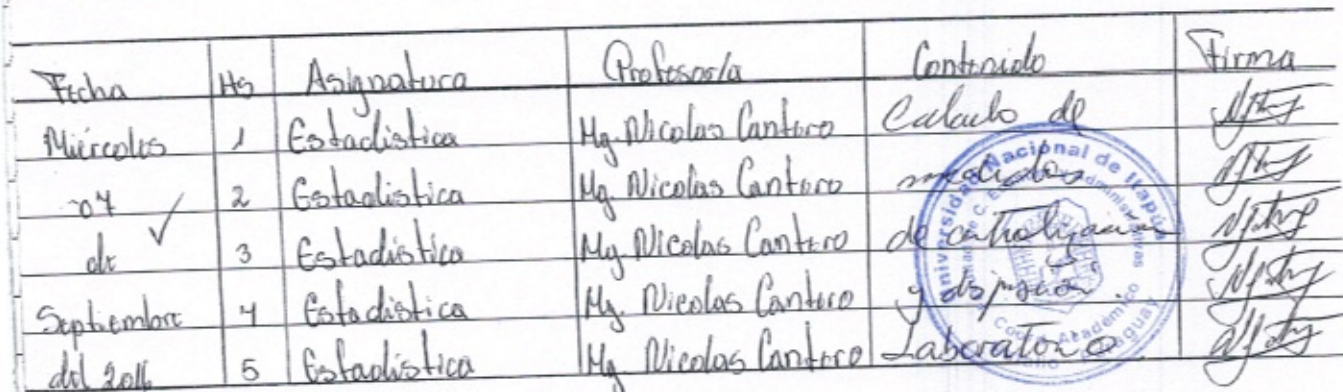 Fecha Hs Asignatura Profesor/a Contenido Firma
Miércoles 1 Estadística Mg. Nicolas Cantero Calculo de
07 2 Estadística Mg. Nicolas Cantero medidas
de 3 Estadística Mg. Nicolas Cantero de centralizacion
Septiembre 4 Estadística Mg. Nicolas Cantero y dispersión.
del 2016 5 Estadística Mg. Nicolas Cantero Laboratorio
Universidad Nacional de Itapúa
Académico